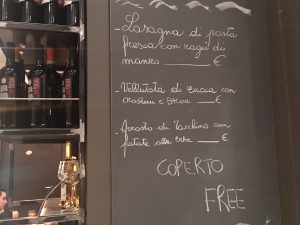 Lasagna di pasta
fresca con ragù di
manzo ____€
- Vellutata di zucca con
crostini e ____€
- Arrosto di Tacchino con
patate alle erbe ____€
COPERTO
FREE